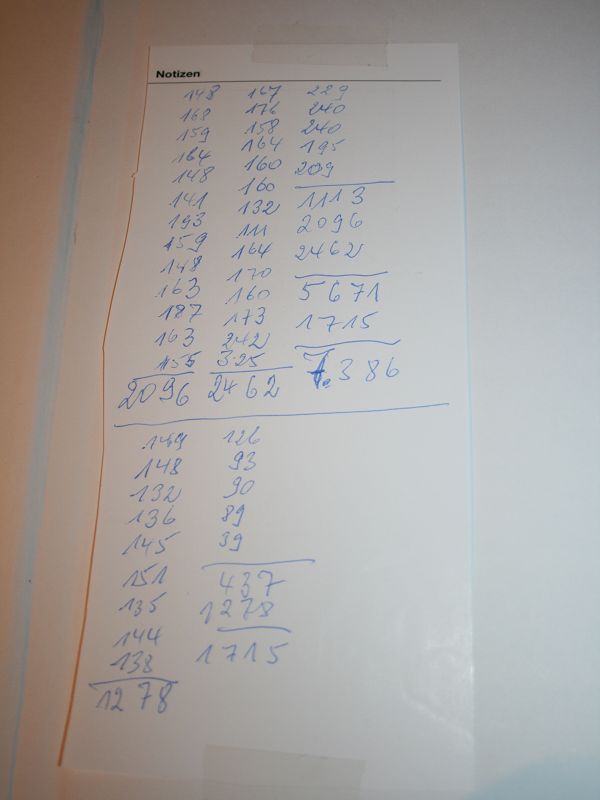 Notizen
148
168
159
164
148
141
193
159
148
163
187
163
155
2096
167
176
158
164
160
160
132
111
164
170
160
173
242
325
2462
229
240
240
195
209
1113
2096
2462
5671
1715
7.386
149
148
132
136
145
151
135
144
138
1278
126
93
90
89
39
437
1278
1715